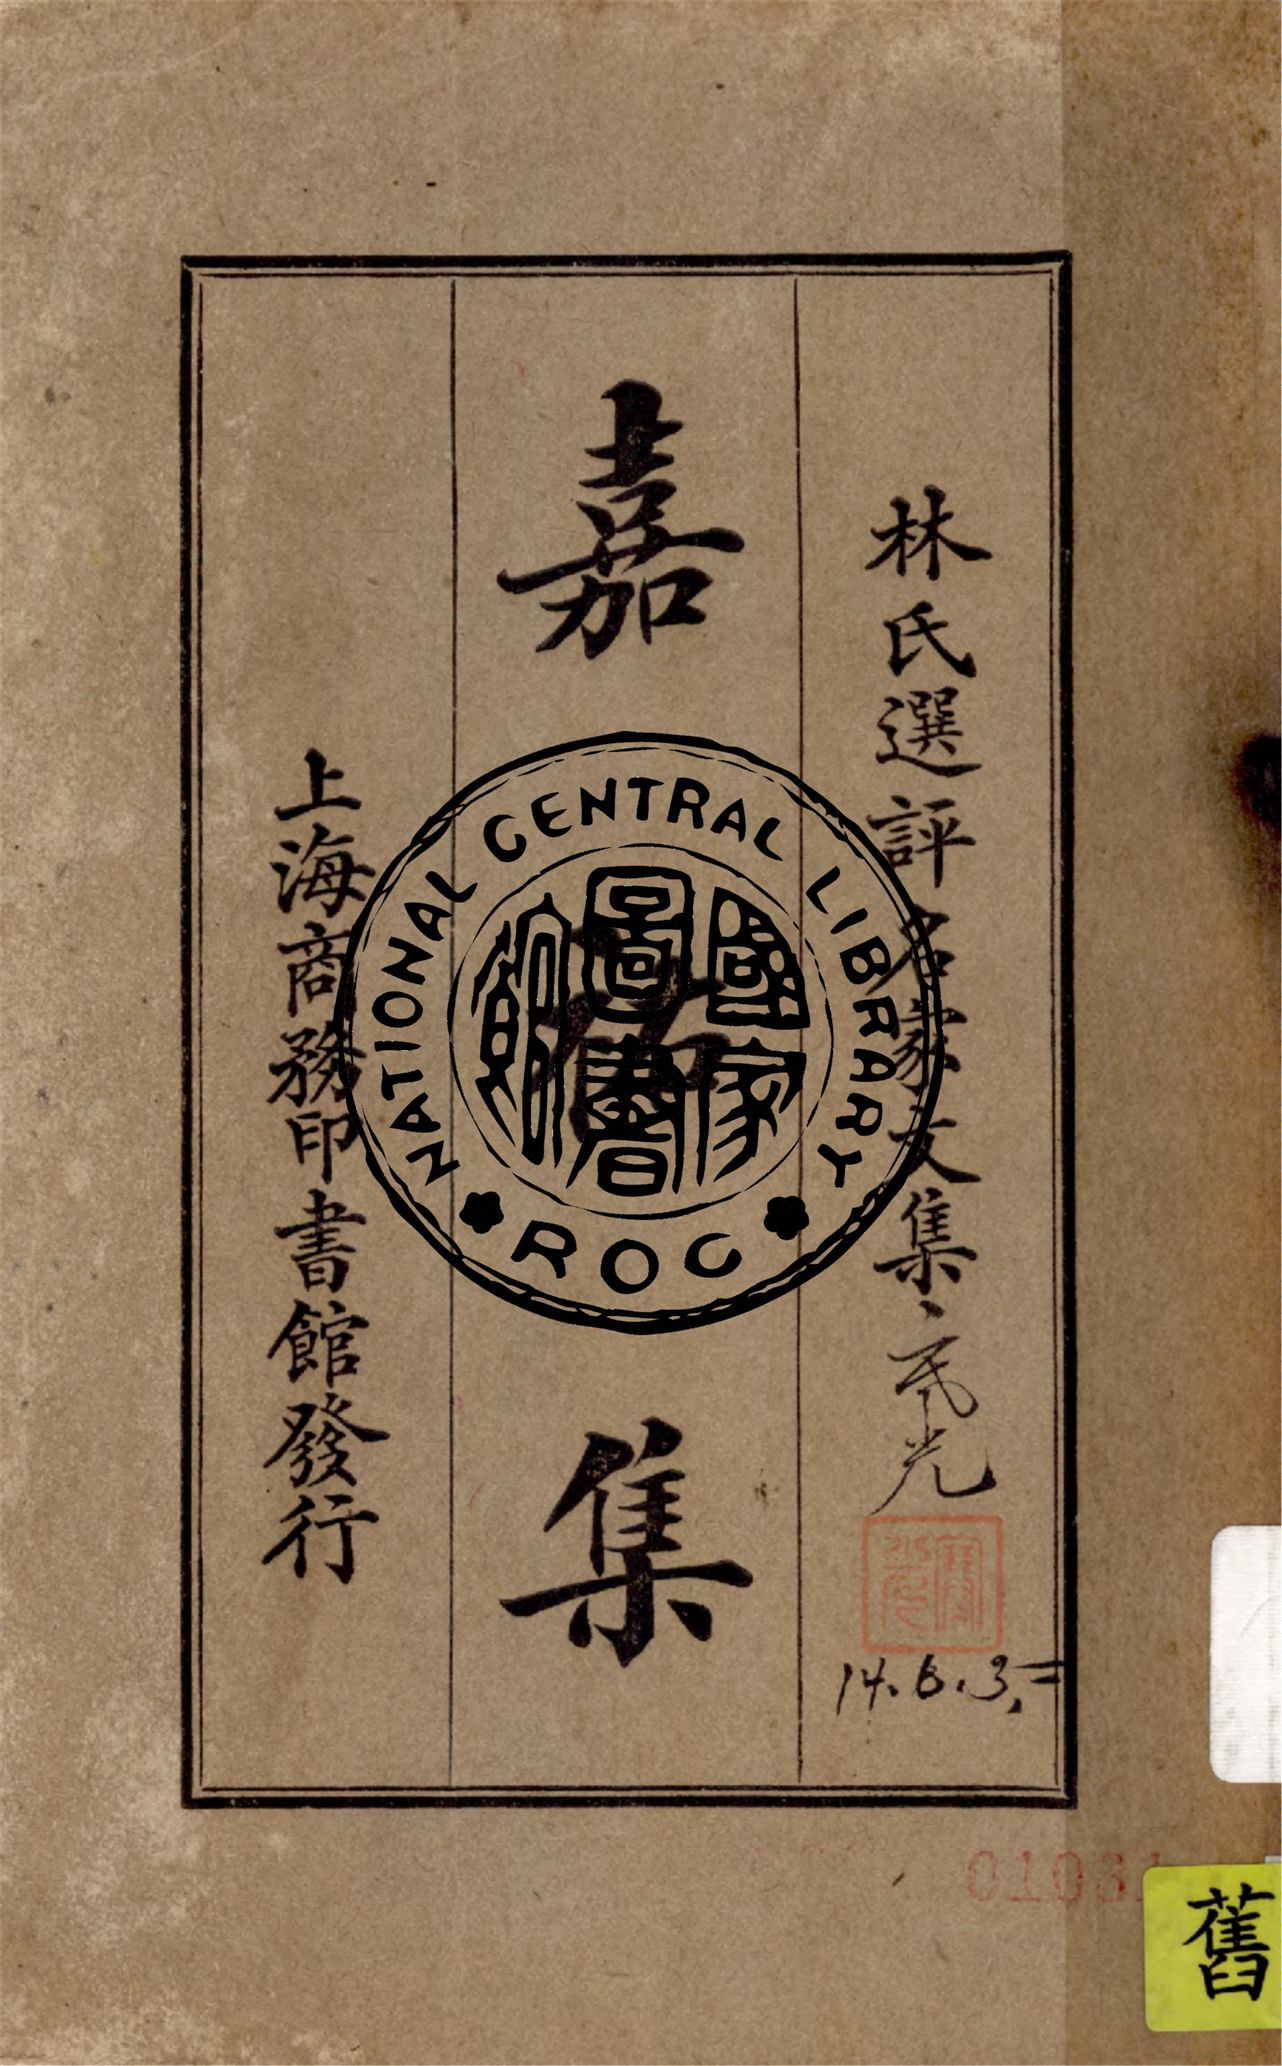 林氏選評名家文集
光
14.6.3.
嘉祐集
上海商務印書館發行
NATIONAL CENTRAL LIBRARY
國家圖書館
ROC
舊